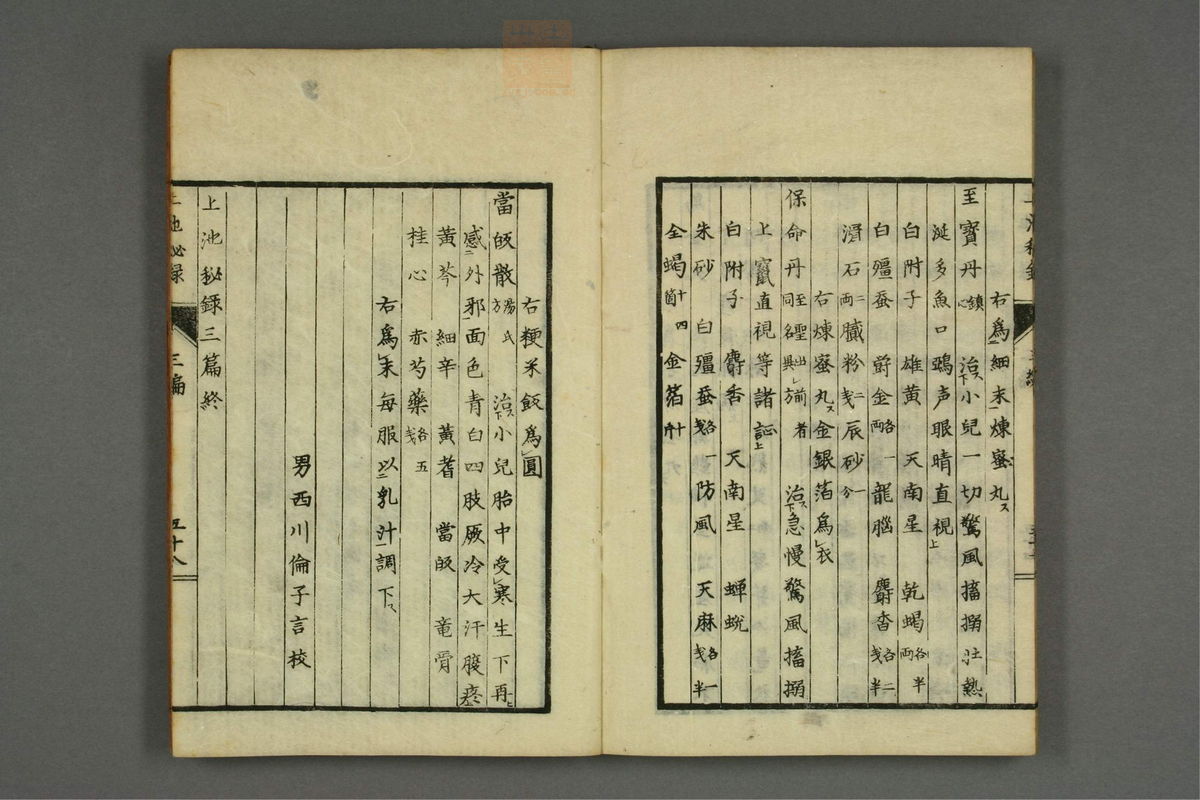 右爲細末煉蜜丸ス
至寶丹鎮心 治ス下小兒一切驚風搐搦壯熱
涎多魚口鵶声眼睛直視上
白附子 雄黄 天南星 乾蝎各半両
白殭蚕 欝金各一両 龍腦 麝香各二戋半
滑石二両 膩粉二戋 辰砂一分
右煉蜜丸ス金銀箔爲衣
保命丹 至聖同名異出前方者 治ス下急慢驚風搐搦
上竄直視等諸証上
白附子 麝香 天南星 蝉蛻
朱砂 白殭蚕各一戋 防風 天麻各一戋半
全蝎十四箇 金箔十片
右粳米飯爲圓
當皈散湯氏方 治ス下小兒胎中受寒生下再
感外邪面色青白四肢厥冷大汗腹疼
黄芩 細辛 黄耆 當皈 竜骨
桂心 赤芍藥各五戋
右爲末每服以乳汁調下ス
男西川倫子言校
上池秘録三篇終
上池秘録 三編 五十八